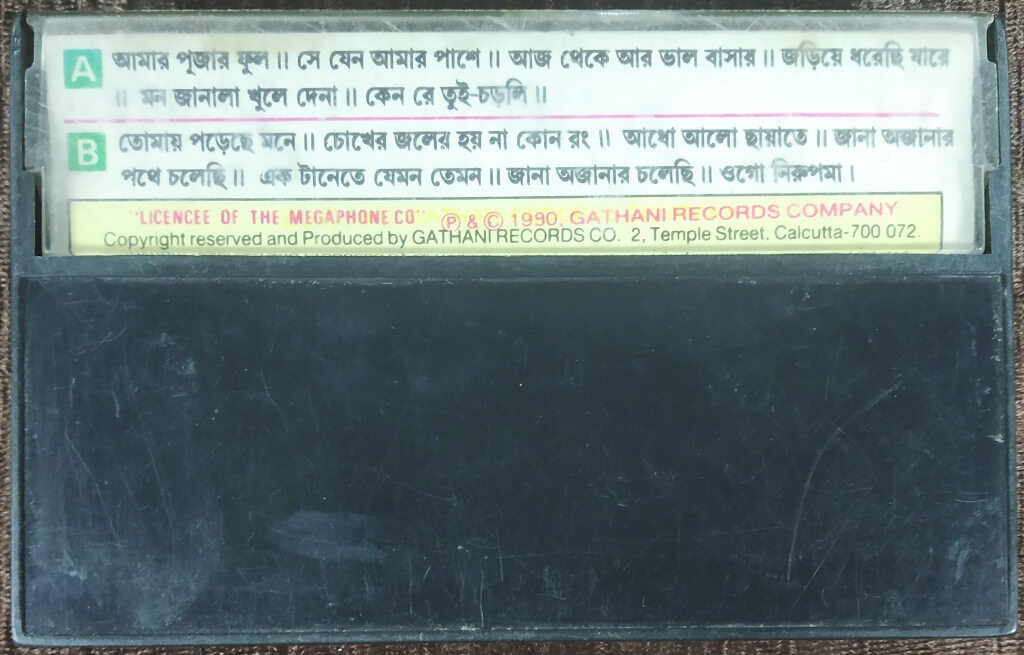 A আমার পূজার ফুল ॥ সে যেন আমার পাশে ॥ আজ থেকে আর ভাল বাসার ॥ জড়িয়ে ধরেছি যারে
॥ মন জানালা খুলে দেনা ॥ কেন রে তুই-চড়লি ॥
B তোমায় পড়েছে মনে ॥ চোখের জলের হয় না কোন রং ॥ আধো আলো ছায়াতে ॥ জানা অজানার
পথে চলেছি ॥ এক টানেতে যেমন তেমন ॥ জানা অজানার চলেছি ॥ ওগো নিরুপমা ।
"LICENCEE OF THE MEGAPHONE CO" Ⓟ & © 1990, GATHANI RECORDS COMPANY
Copyright reserved and Produced by GATHANI RECORDS CO. 2, Temple Street, Calcutta-700 072.